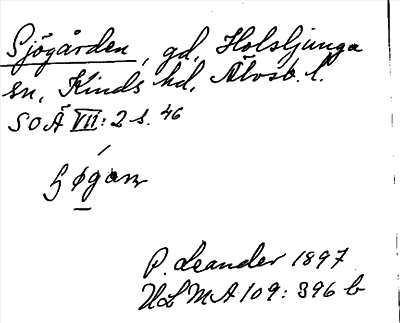 Sjögården, gd, Holsljunga
sn, Kinds hd, Älvsb. l.
SOÄ VII: 2 s. 46
P. Leander 1897
ULMA 109: 396 b